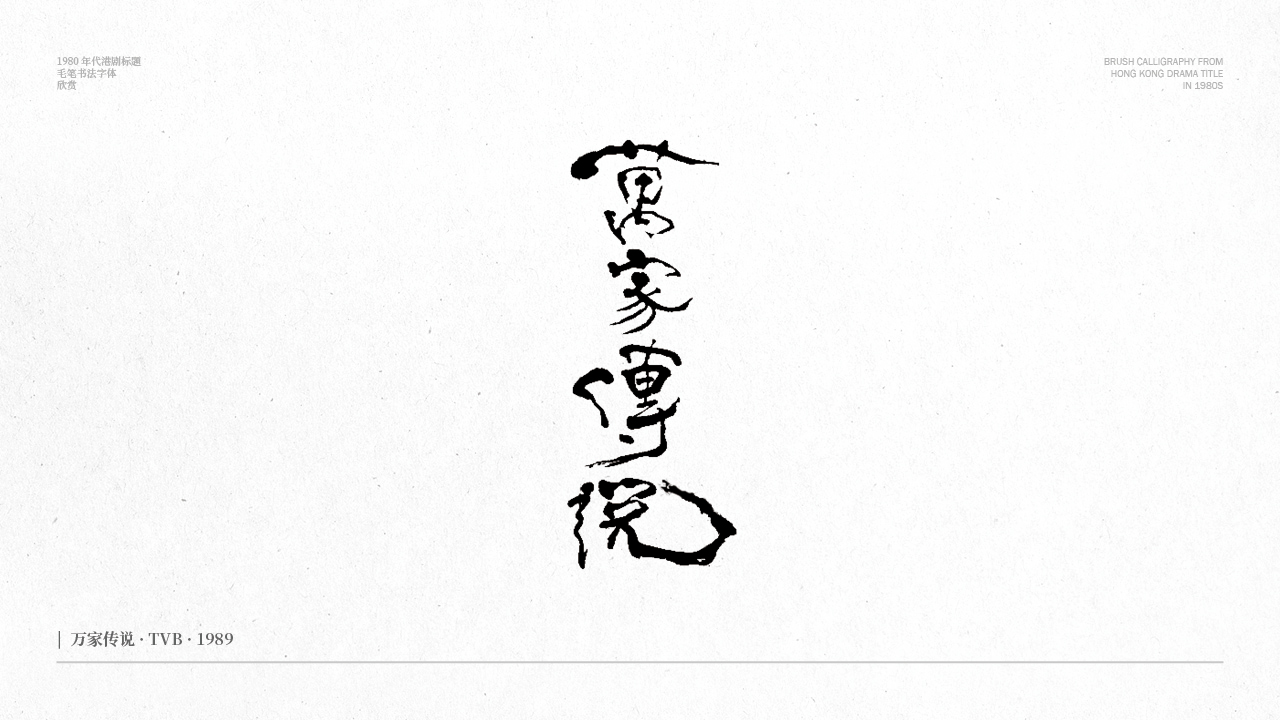 1980 年代港剧标题
毛笔书法字体
欣赏
BRUSH CALLIGRAPHY FROM
HONG KONG DRAMA TITLE
IN 1980S
萬家傳説
| 万家传说 · TVB · 1989